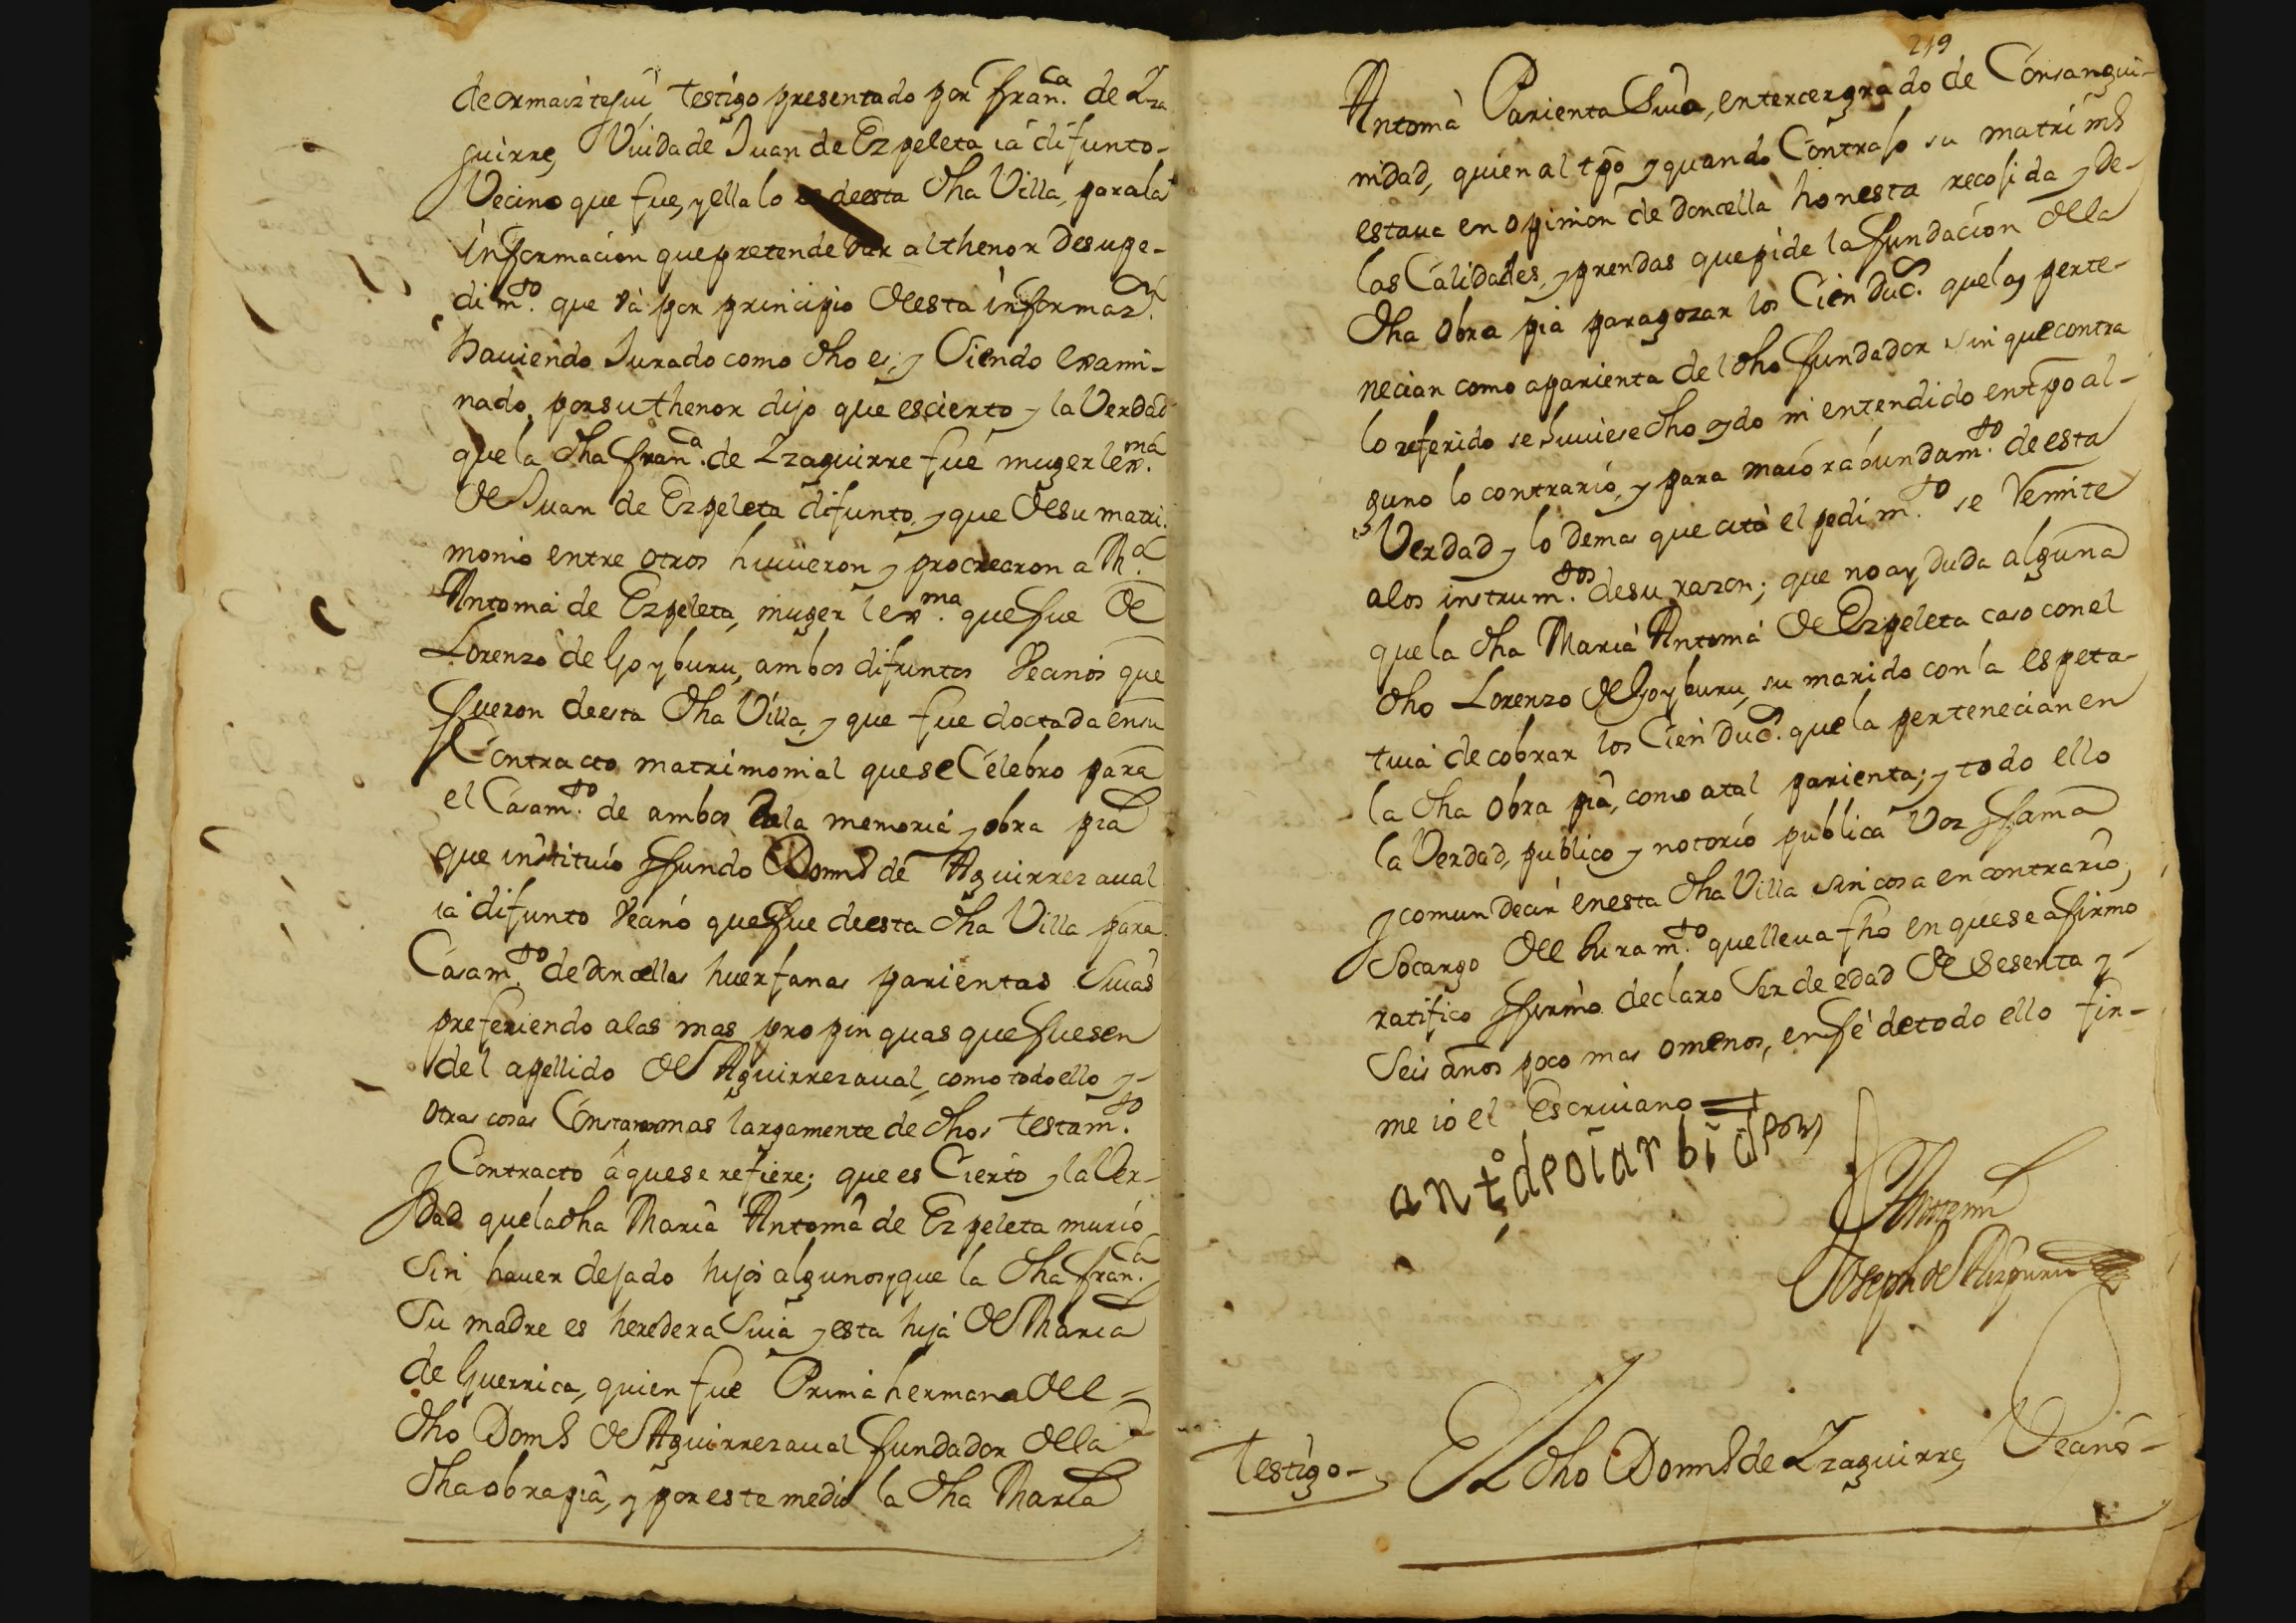 de ormaiztegui, testigo presentado por fran.ca de Yza
guirre, Viuda de Juan de Ezpeleta ia difunto-
Vecino que fue, y ella lo es de esta dha Villa, para la
informacion que pretende dar al thenor de su pe-
dim.to que vá por principio de esta informaz.n
haviendo Jurado como dho es, y Siendo exami-
nado, por su thenor dijo que es cierto y la Verdad
que la dha fran.ca de Yzaguirre fué muger lex.ma
de Juan de Ezpeleta difunto, y que de su matri-
monio entre otros huuieron y procrearon a M.a
Antonia de Ezpeleta, muger lex.ma que fue de
Lorenzo de Goyburu, ambos difuntos Vecinos que
fueron de esta dha Villa, y que fue doctada en su
Contracto matrimonial que se Celebro para
el Casam.to de ambos la memoria y obra pia
que instituio y fundo Domi.s de Aguirrezaual
ia difunto Vecino que fue de esta dha Villa para
Casam.to de doncellas huerfanas parientas Suias
prefiriendo a las mas propinquas que fuesen
del apellido de Aguirrezaual, como todo ello y-
otras cosas Constaran mas largamente de dhos testam.to
y Contracto â que se refiere; que es Cierto y la Ver-
dad que la dha Maria Antonia de Ezpeleta murio
Sin hauer dejado hijos algunos y que la dha fran.ca
Su madre es heredera Suia y esta hija de Maria
de Guerrica, quien fue Prima hermana del-
dho Dom.s de Aguirrezaual fundador de la
dha obra pia, y por este medio la dha Maria
219
Antonia Parienta Suia, en tercer grado de Consangui-
nidad, quien al tpo y quando Contrajo su matrim.o
estaua en opinion de doncella honesta recojida y de-
las Calidades, y prendas que pide la fundacion de la
dha obra pia para gozar los Cien Duc.s que la perte-
necian como a parienta del dho fundador sin que contra
lo referido se huuiese dho oydo ni entendido en tpo al-
guno lo contrario, y para maior abundam.to de esta
Verdad y lo demas que cita el pedim.to se Remite
a los instrum.tos de su razon; que no ay duda alguna
que la dha Maria Antonia de Ezpeleta caso con el
dho Lorenzo de Goyburu, su marido con la espeta-
tiua de cobrar los Cien Duc.s que la pertenecian en
la dha obra pia, como a tal parienta; y todo ello
la Verdad, publico y notorio publica Voz y fama
y comun decir en esta dha Villa sin cosa en contrario,
Socargo del Juram.to que lleua fho en que se afirmo
ratifico y firmó declaro Ser de edad de Sesenta y-
Seis años poco mas o menos, en fé de todo ello fir-
me io el Escriuano
ant.o de oiarbide
Ante mi
Joseph de Aizpuru
Testigo- El dho Domi.s de Yzaguirre, Vecino-